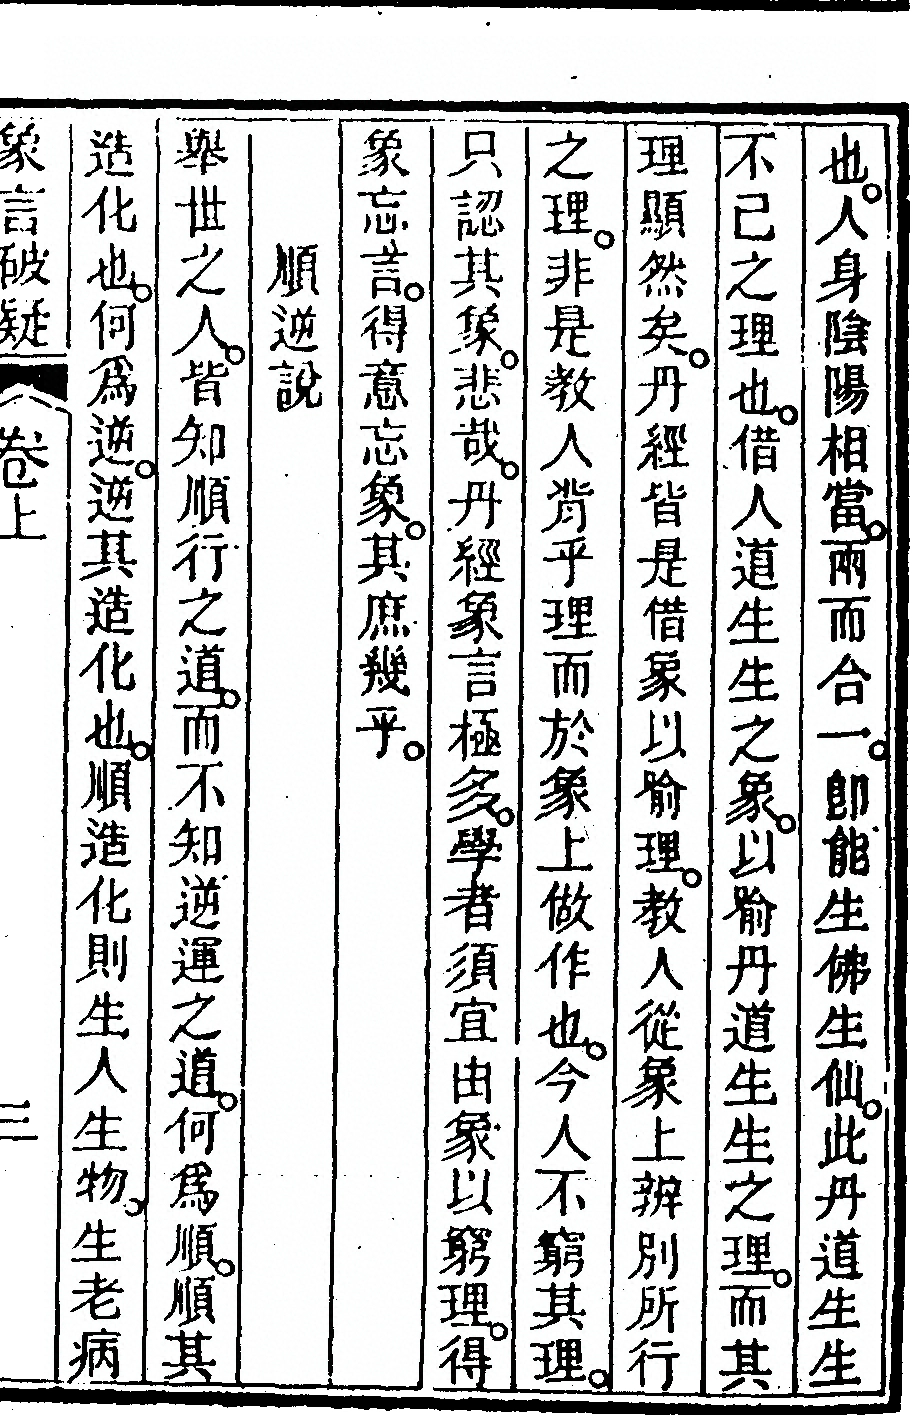 也。人身陰陽相當。兩而合一。卽能生佛生仙。此丹道生生
不已之理也。借人道生生之象。以喻丹道生生之理。而其
理顯然矣。丹經皆是借象以喻理。教人從象上辨別所行
之理。非是教人背乎理而於象上做作也。今人不窮其理。
只認其象。悲哉。丹經象言極多。學者須宜由象以窮理。得
象忘言。得意忘象。其庶幾乎。
順逆說
舉世之人。皆知順行之道。而不知逆運之道。何爲順。順其
造化也。何爲逆。逆其造化也。順造化則生人生物。生老病
象言破疑 卷上 三